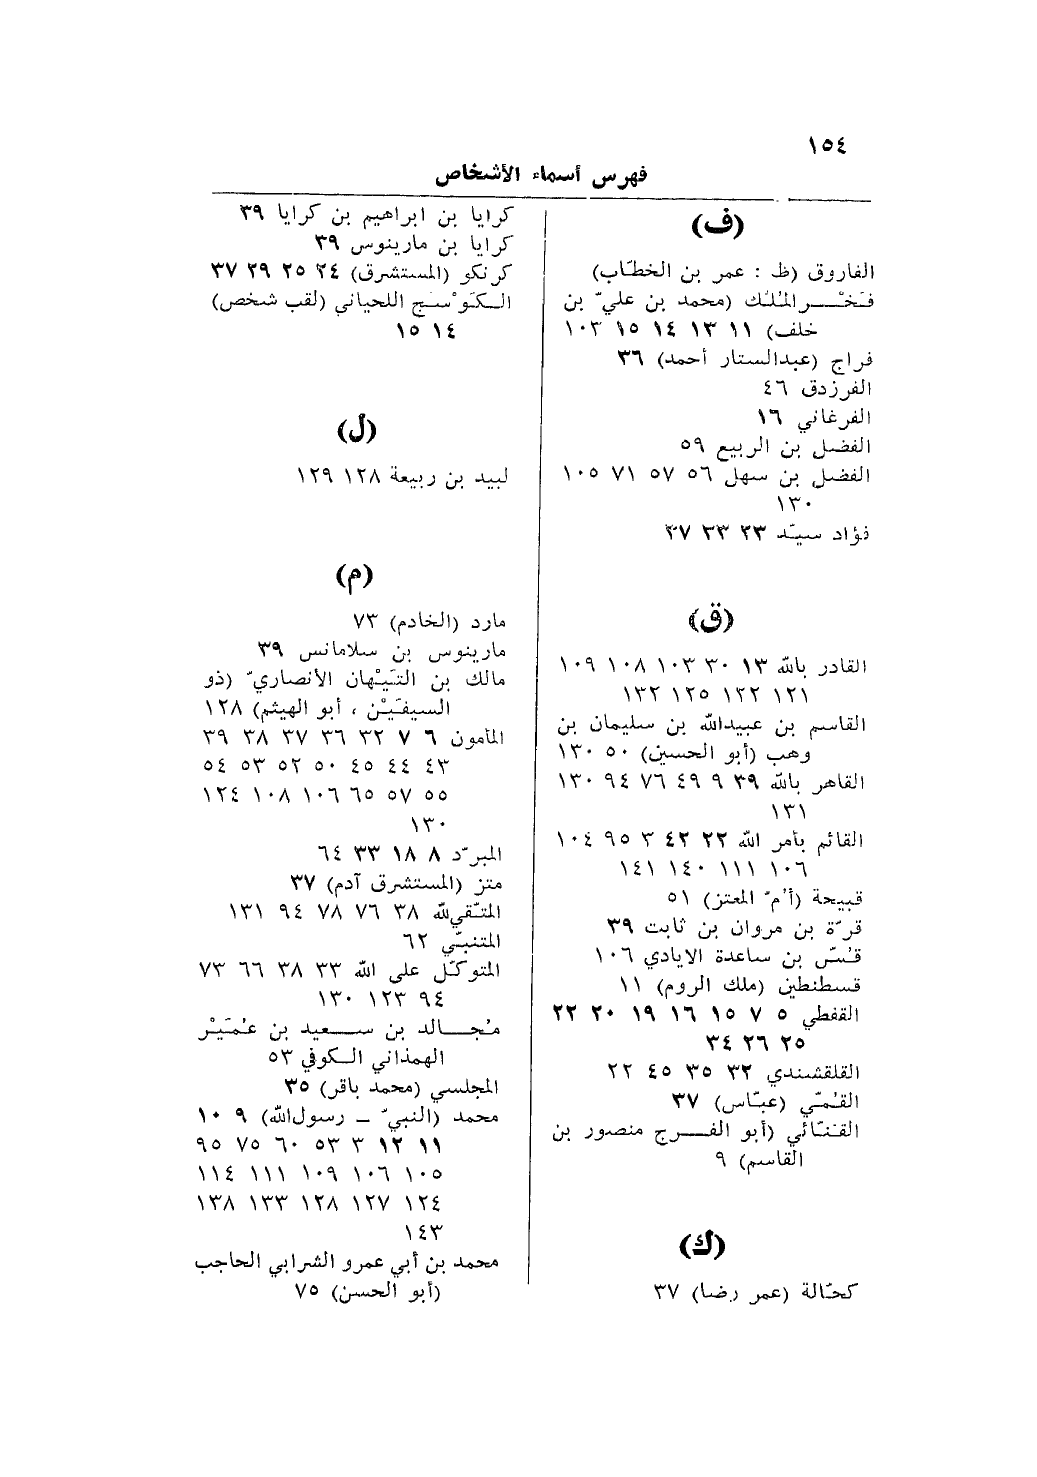 ١٥٤
فهرس أسماء الأشخاص
(ف)
الفاروق (ظ : عمر بن الخطّاب)
فَخْر المُلك (محمد بن عليّ بن
خلف) ١١ ١٣ ١٤ ١٥ ١٠٣
فراج (عبدالستار أحمد) ٣٦
الفرزدق ٤٦
الفرغاني ١٦
الفضل بن الربيع ٥٩
الفضل بن سهل ٥٦ ٥٧ ٧١ ١٠٥
١٣٠
فؤاد سيّد ٢٣ ٣٣ ٣٧
(ق)
القادر بالله ١٣ ٣٠ ١٠٣ ١٠٨ ١٠٩
١٢١ ١٢٢ ١٢٥ ١٣٢
القاسم بن عبيدالله بن سليمان بن
وهب (أبو الحسين) ٥٠ ١٣٠
القاهر بالله ٣٩ ٩ ٤٩ ٧٦ ٩٤ ١٣٠
١٣١
القائم بأمر الله ٢٢ ٤٢ ٣ ٩٥ ١٠٤
١٠٦ ١١١ ١٤٠ ١٤١
قبيحة (أُمّ المعتز) ٥١
قرّة بن مروان بن ثابت ٣٩
قُسّ بن ساعدة الايادي ١٠٦
قسطنطين (ملك الروم) ١١
القفطي ٥ ٧ ١٥ ١٦ ١٩ ٢٠ ٢٢
٢٥ ٢٦ ٣٤
القلقشندي ٣٢ ٣٥ ٤٥ ٢٢
القُمّي (عبّاس) ٣٧
القنّائي (أبو الفرج منصور بن
القاسم) ٩
(ك)
كحّالة (عمر رضا) ٣٧
كرايا بن ابراهيم بن كرايا ٣٩
كرايا بن مارينوس ٣٩
كرنكو (المستشرق) ٢٤ ٢٥ ٢٩ ٣٧
الكَوْسَج اللحياني (لقب شخص)
١٤ ١٥
(ل)
لبيد بن ربيعة ١٢٨ ١٢٩
(م)
مارد (الخادم) ٧٣
مارينوس بن سلامانس ٣٩
مالك بن التَيّهان الأنصاريّ (ذو
السيفَيْن ، أبو الهيثم) ١٢٨
المأمون ٦ ٧ ٣٢ ٣٦ ٣٧ ٣٨ ٣٩
٤٣ ٤٤ ٤٥ ٥٠ ٥٢ ٥٣ ٥٤
٥٥ ٥٧ ٦٥ ١٠٦ ١٠٨ ١٢٤
١٣٠
المبرّد ٨ ١٨ ٣٣ ٦٤
متز (المستشرق آدم) ٣٧
المتّقي لله ٣٨ ٧٦ ٧٨ ٩٤ ١٣١
المتنبّي ٦٢
المتوكّل على الله ٣٣ ٣٨ ٦٦ ٧٣
٩٤ ١٢٣ ١٣٠
مُجالد بن سعيد بن عُمَيْر
الهمذاني الكوفي ٥٣
المجلسي (محمد باقر) ٣٥
محمد (النبيّ ــ رسول الله) ٩ ١٠
١١ ١٢ ٣ ٥٣ ٦٠ ٧٥ ٩٥
١٠٥ ١٠٦ ١٠٩ ١١١ ١١٤
١٢٤ ١٢٧ ١٢٨ ١٣٣ ١٣٨
١٤٣
محمد بن أبي عمرو الشرابي الحاجب
(أبو الحسن) ٧٥